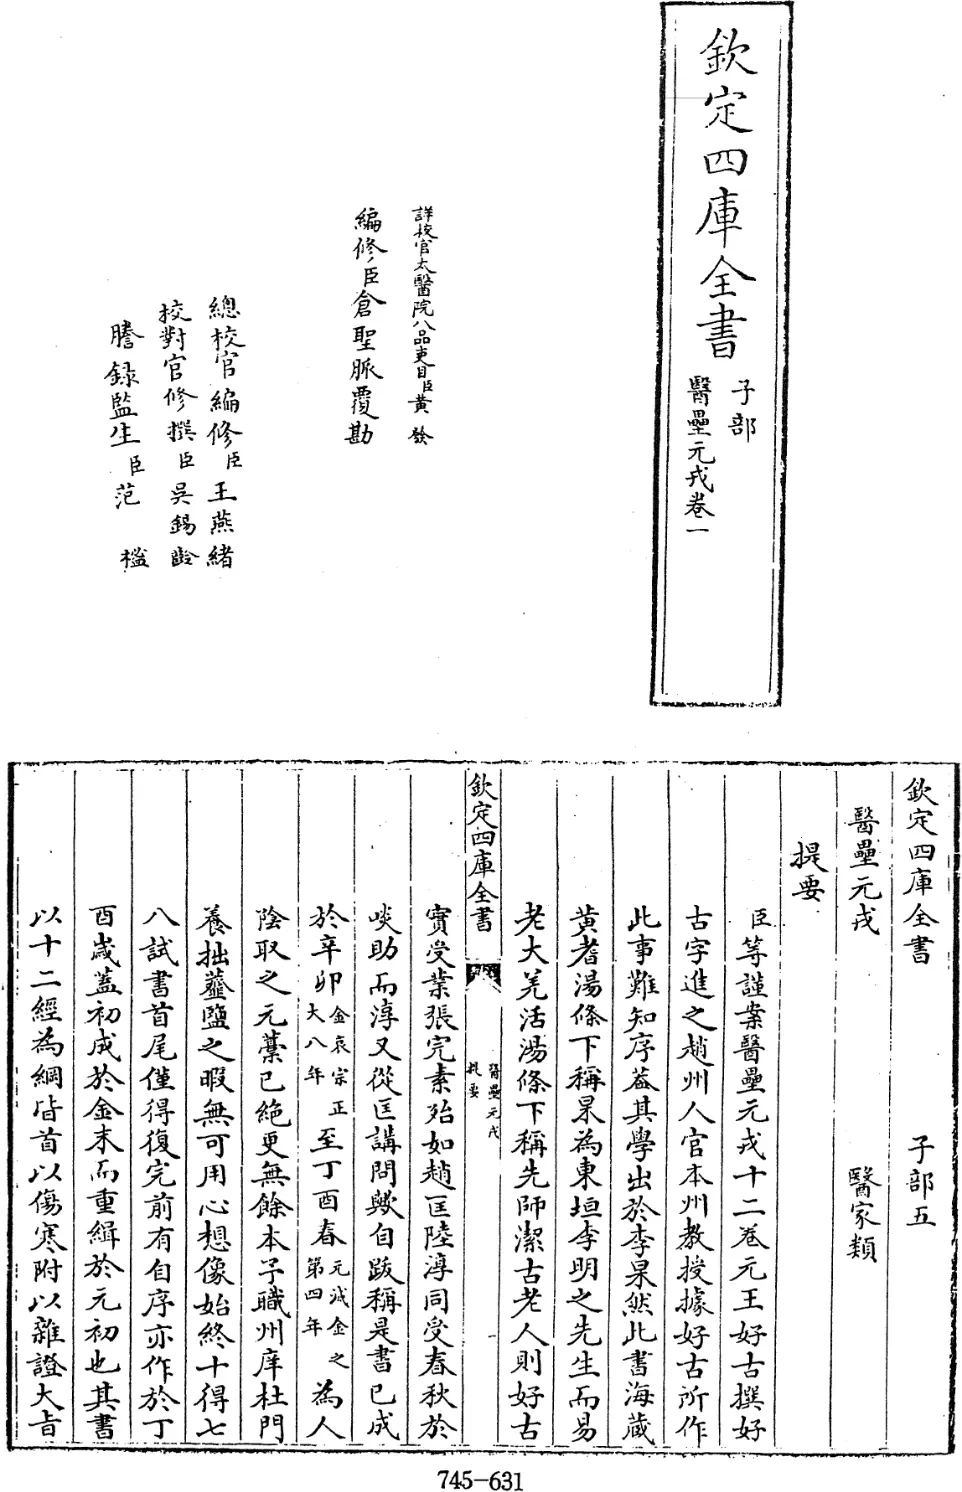 欽定四庫全書
子部
醫壘元戎卷一
詳校官太醫院八品吏目臣黃發
編修臣倉聖脈覆勘
總校官編修臣王燕緒
校對官修撰臣吳錫齡
謄錄監生臣范檻
欽定四庫全書 子部五
醫壘元戎 醫家類
提要
臣等謹案醫壘元戎十二卷元王好古撰好
古字進之趙州人官本州教授據好古所作
此事難知序葢其學出於李杲然此書海藏
黃耆湯條下稱杲為東垣李明之先生而易
老大羌活湯條下稱先師潔古老人則好古
欽定四庫全書
醫壘元戎
提要
實受業張完素殆如趙匡陸淳同受春秋於
啖助而淳又從匡講問歟自跋稱是書已成
於辛卯金哀宗正大八年至丁酉春元滅金之第四年為人
陰取之元藁已絶更無餘本予職州庠杜門
養拙虀鹽之暇無可用心想像始終十得七
八試書首尾僅得復完前有自序亦作於丁
酉歲蓋初成於金末而重緝於元初也其書
以十二經為綱皆首以傷寒附以雜證大旨
745-631